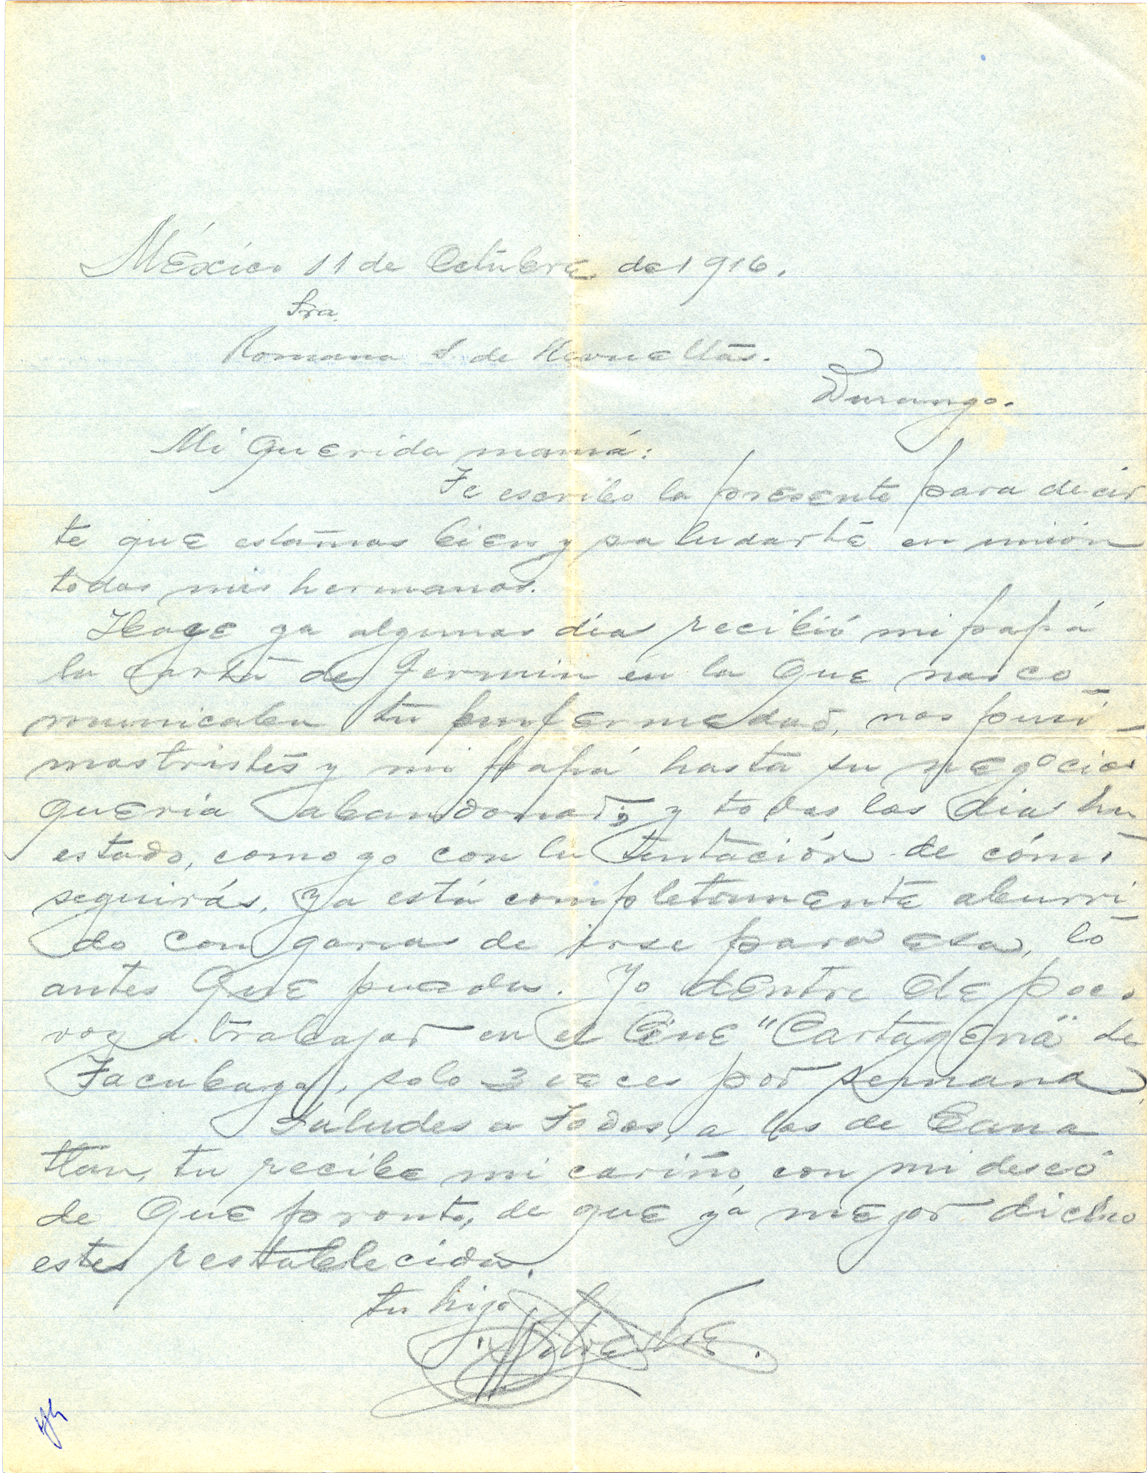 México 11 de Octubre de 1916.
Sra.
Romana S. de Revueltas.
Durango.
Mi querida mamá:
Te escribo la presente para decir
te que estamos bien y saludarte en unión
todos mis hermanos.
Hace ya algunos dias recibió mi papá
la carta de Fermin en la que nos co
municaba tu enfermedad, nos pusi-
mos tristes y mi papá hasta su negocio
queria abandonar; y todos los dias ha
estado, como yo con la tentación de cómo
seguirás. Ya está completamente aburri
do con ganas de irse para esa, lo
antes que pueda. Yo dentre de poco
voy a trabajar en el Cine "Cartagena" de
Tacubaya, solo 3 veces por semana.
Saludes a Todos, a los de Cana
tlan, tu recibe mi cariño, con mi deseo
de que pronto, de que ya mejor dicho
estes restablecida.
tu hijo
Silvestre.